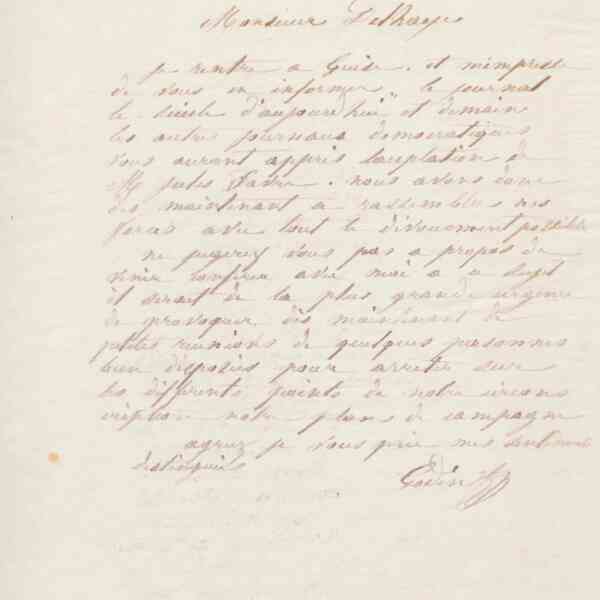 Monsieur Delhaye
je rentre a Guise. et m'empresse
de vous en informer, le journal
le siècle d'aujourd'hui et demain
les autres journaux democratiques
vous auront appris l'acceptation de
M Jules Favre. nous avons donc
des maintenant a rassembler nos
forces avec tout le dévouement possible
ne jugerez vous pas a propos de
venir conférer avec moi a ce sujet
il serait de la plus grande urgence
de provoquer dès maintenant de
petites réunions de quelques personnes
bien disposées pour arreter sur
les differents points de notre circons
cription notre plans de campagne
agréez je vous prie mes sentiments
distingués
Godin